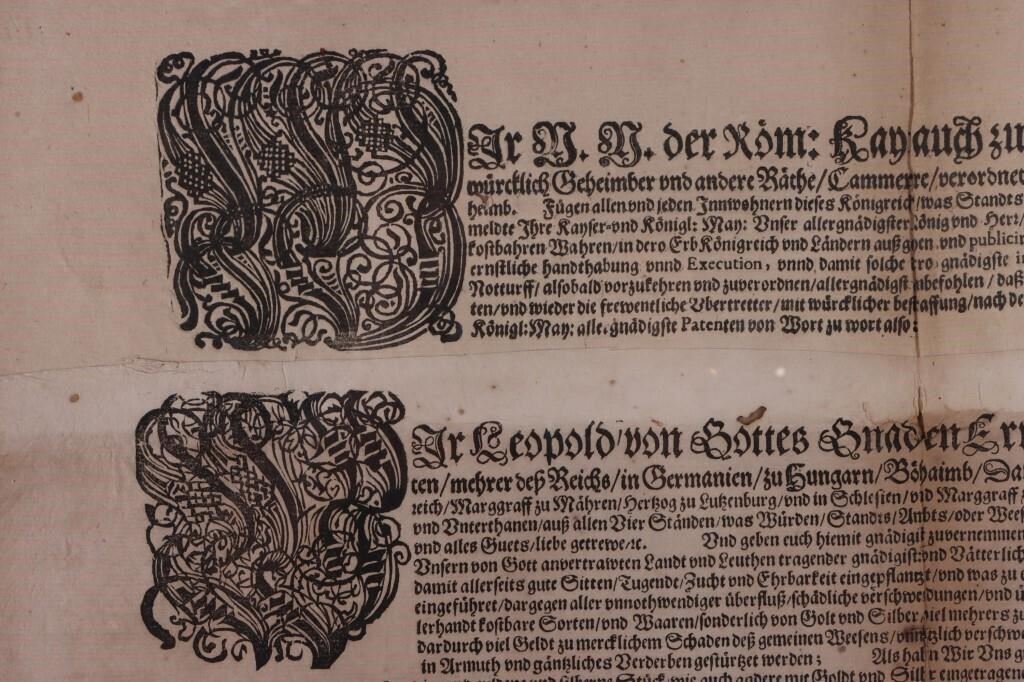 WIr N. N. der Röm: Kay auch zu
würcklich Geheimber vnd andere Räthe/Cammerre/verordnet
heimb. Fügen allen vnd jeden Innwohnern dieses Königreich/was Standts
meldte Ihre Kayser-vnd Königl: May: Vnser allergnädigster König vnd Herr/
kostbahren Wahren/in dero Erb Königreich vnd Ländern außgehen vnd publicir
ernstliche handthabung vnnd Execution, vnnd damit solche gnädigste
Notturff/ alsobald vorzukehren vnd zuverordnen/allergnädigst anbefohlen/ daß
ten/vnd wieder die freventliche Vbertretter/mit würcklicher bestraffung/nach de
Königl:May: allergnädigste Patenten von Wort zu wort also:
WIr Leopold von Gottes Gnaden Er
ten/mehrer deß Reichs/in Germanien/zu Hungarn/Böhaimb/Da
reich/Marggraff zu Mähren/Hertzog zu Lutzenburg/vnd in Schlesien/vnd Marggraff
vnd Vnterthanen/auß allen Vier Ständen/was Würden/Standts/Ambts/oder Wees
vnd alles Guets/liebe getrewe/ꝛc. Vnd geben euch hiemit gnädigst zuvernemmen
Vnsern von Gott anvertrawten Landt vnd Leuthen tragender gnädigist vnd Vätterlich
damit allerseits gute Sitten/Tugendt/Zucht vnd Ehrbarkeit eingepflantzt/vnd was zu
eingeführet/dargegen aller vnnothwendiger überfluß/schädliche verschwendungen/vnd ü
lerhandt kostbare Sorten/vnd Waaren/sonderlich von Golt vnd Silber viel mehrers zu
dardurch viel Geldt zu mercklichem Schaden deß gemeinen Weesens/vnnützlich verschw
in Armuth vnd gäntzliches Verderben gestürtzet werden; Als haben Wir Vns
Stück/wie auch andere mit Goldt vnd Silber eingetragene